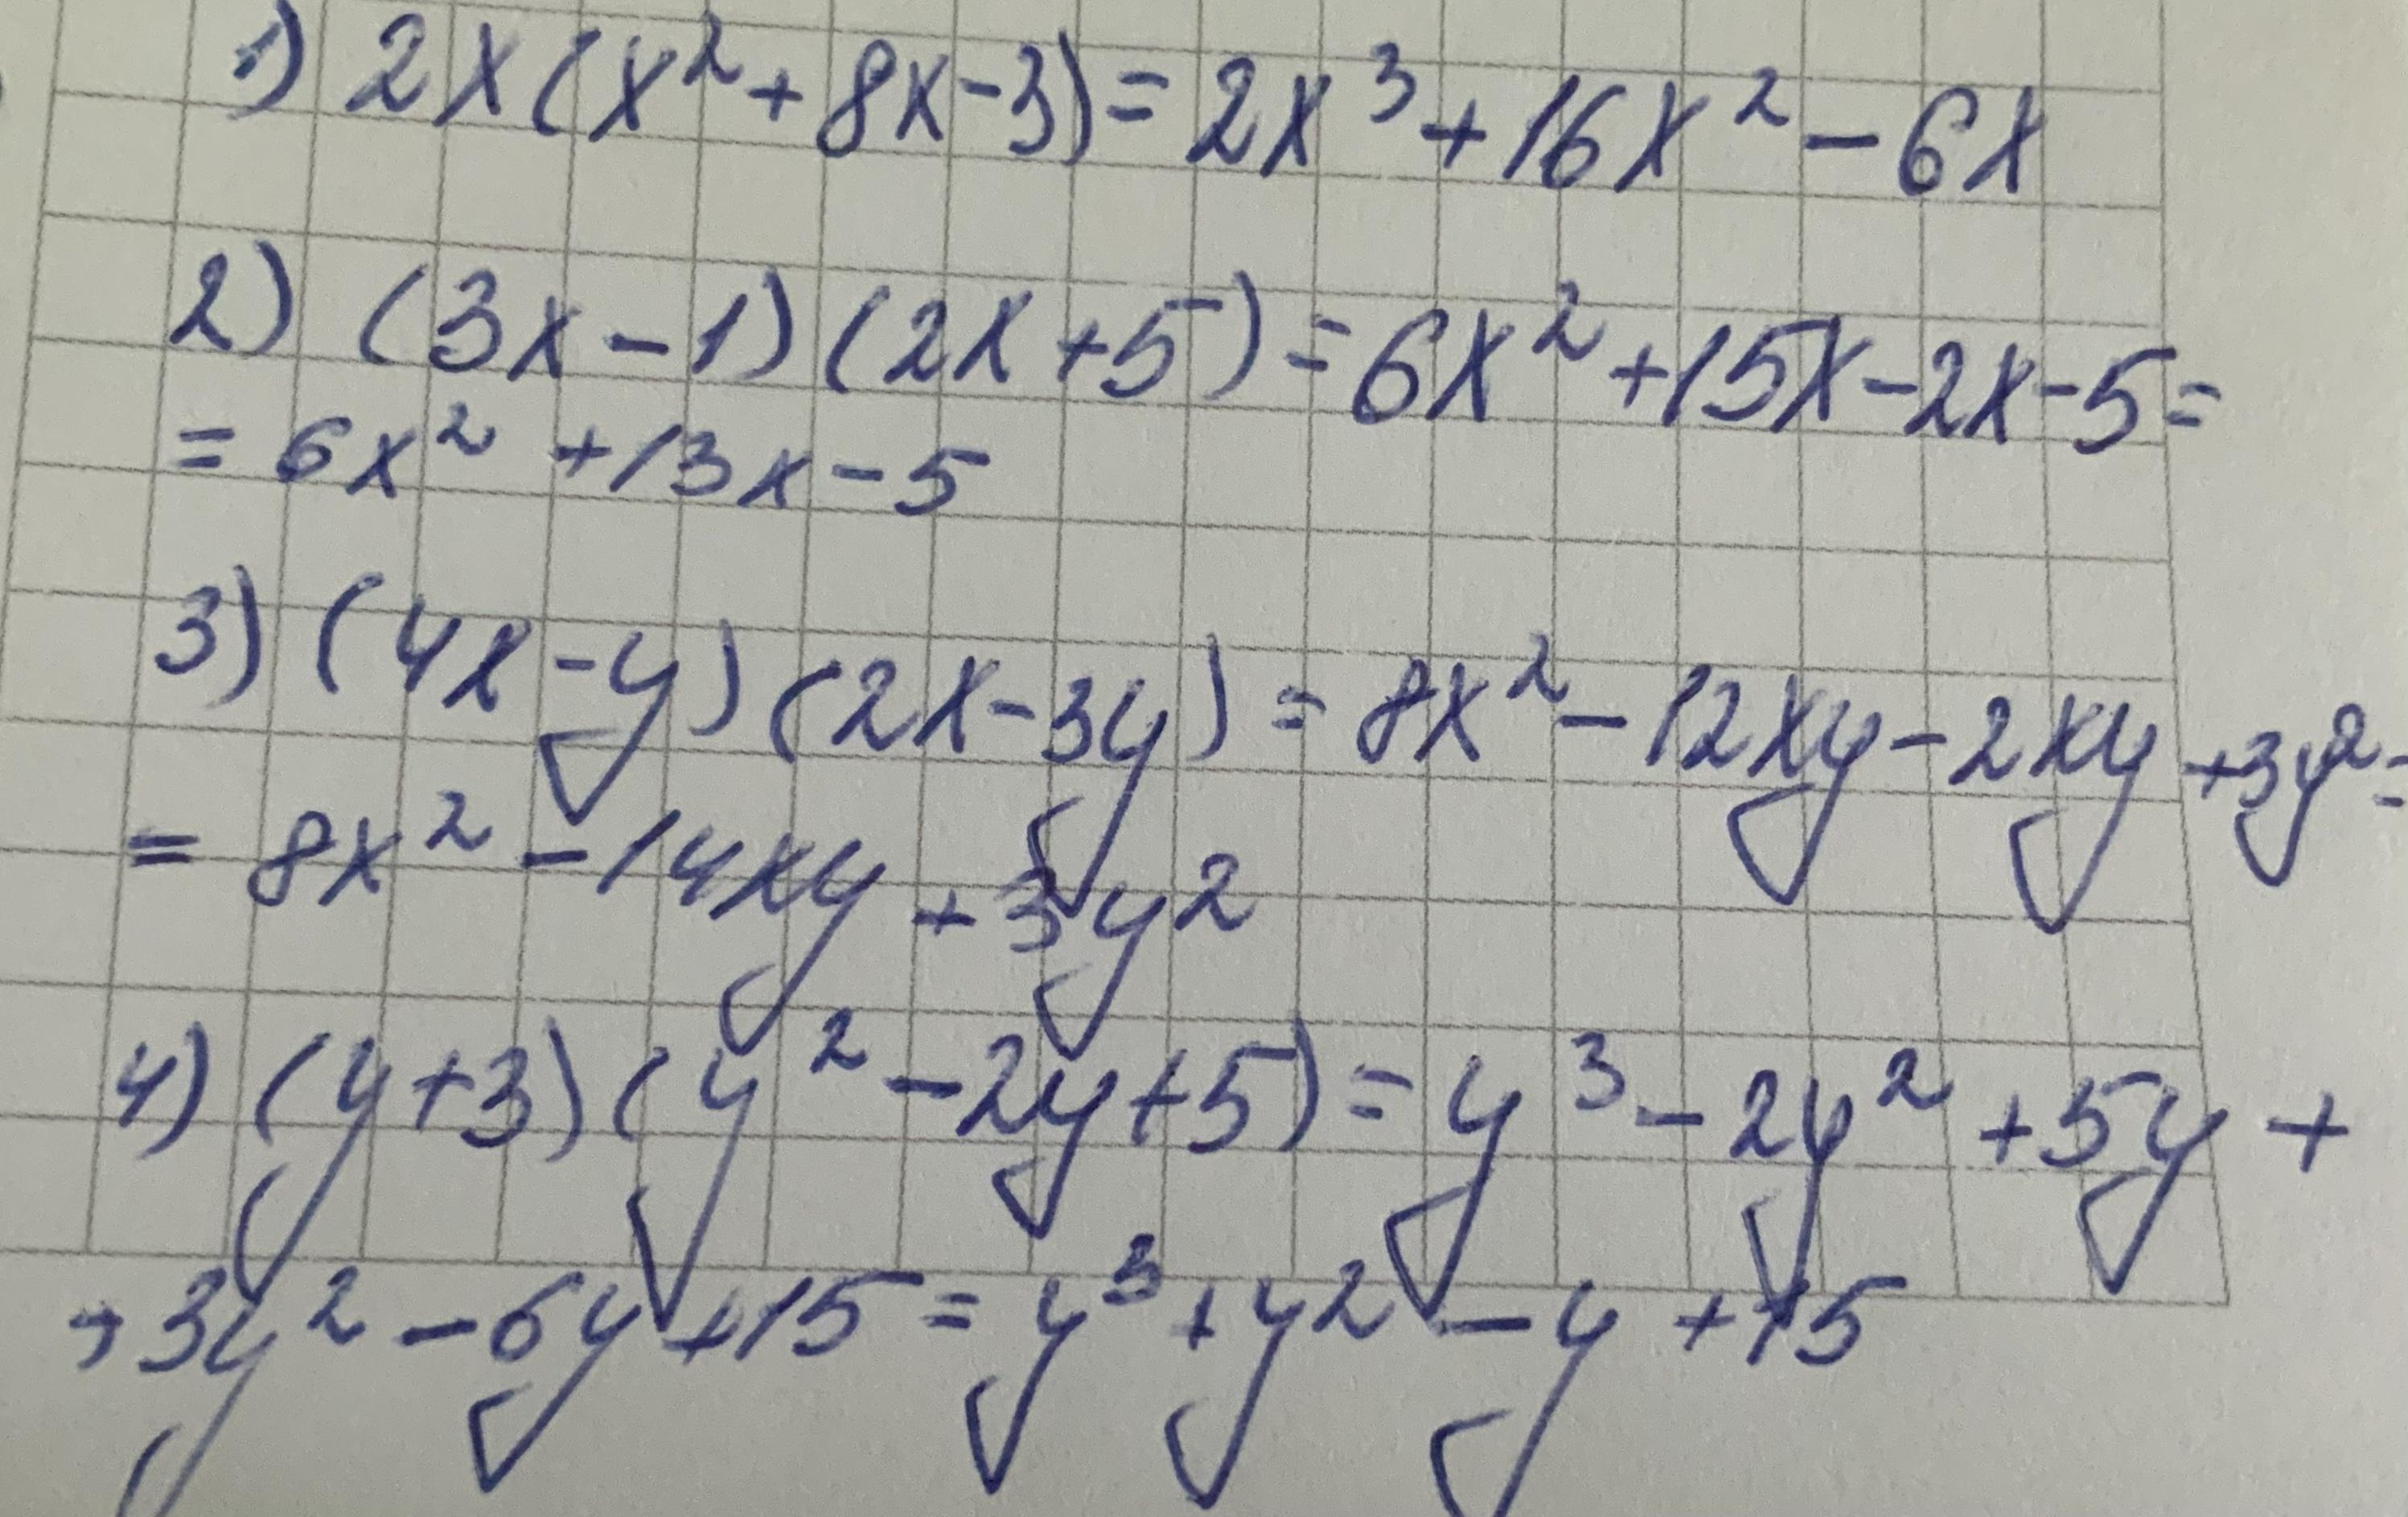 1) 2x(x²+8x-3)=2x³+16x²-6x
2) (3x-1)(2x+5)=6x²+15x-2x-5=
=6x²+13x-5
3) (4x-y)(2x-3y)=8x²-12xy-2xy+3y²=
=8x²-14xy+3y²
4) (y+3)(y²-2y+5)=y³-2y²+5y+
+3y²-6y+15=y³+y²-y+15